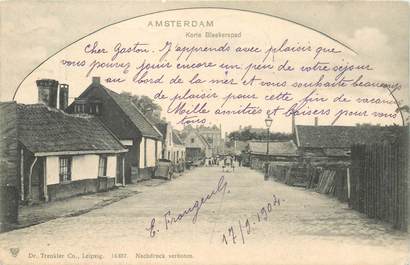 AMSTERDAM
Korte Bleekerspad
Cher Gaston. J'apprends avec plaisir que
vous pouvez jouir encore un peu de votre séjour
au bord de la mer et vous souhaite beaucoup
de plaisir pour cette fin de vacances
Mille amitiés et baisers pour vous
E. Frongeul
17/9. 1904
Dr. Trenkler Co., Leipzig. 14357. Nachdruck verboten.